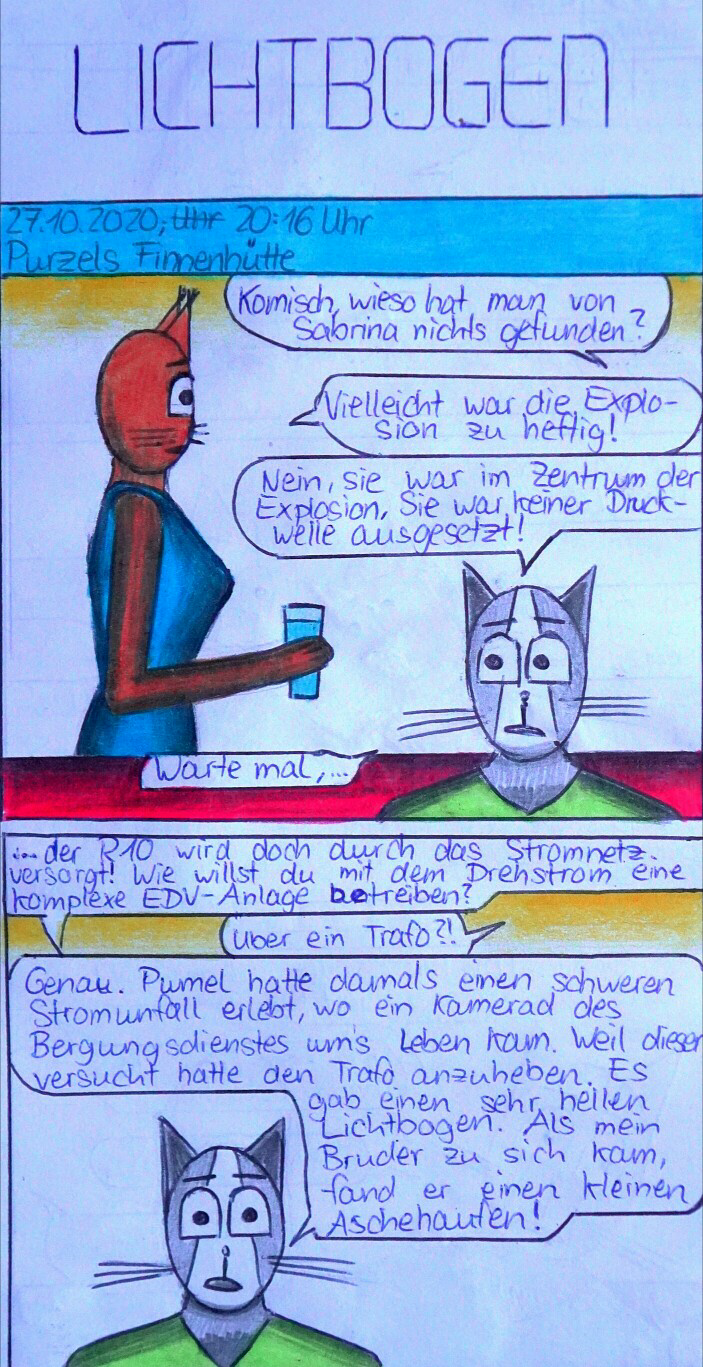 LICHTBOGEN
27.10.2020, Uhr 20:16 Uhr
Purzels Finnenhütte
Komisch, wieso hat man von
Sabrina nichts gefunden?
Vielleicht war die Explo-
sion zu heftig!
Nein, sie war im Zentrum der
Explosion, Sie war keiner Druck-
welle ausgesetzt!
Warte mal,...
... der R10 wird doch durch das Stromnetz
versorgt! Wie willst du mit dem Drehstrom eine
komplexe EDV-Anlage betreiben?
Über ein Trafo?!
Genau. Pumel hatte damals einen schweren
Stromunfall erlebt, wo ein Kamerad des
Bergungsdienstes um's Leben kam. Weil dieser
versucht hatte den Trafo anzuheben. Es
gab einen sehr hellen
Lichtbogen. Als mein
Bruder zu sich kam,
fand er einen kleinen
Aschehaufen!